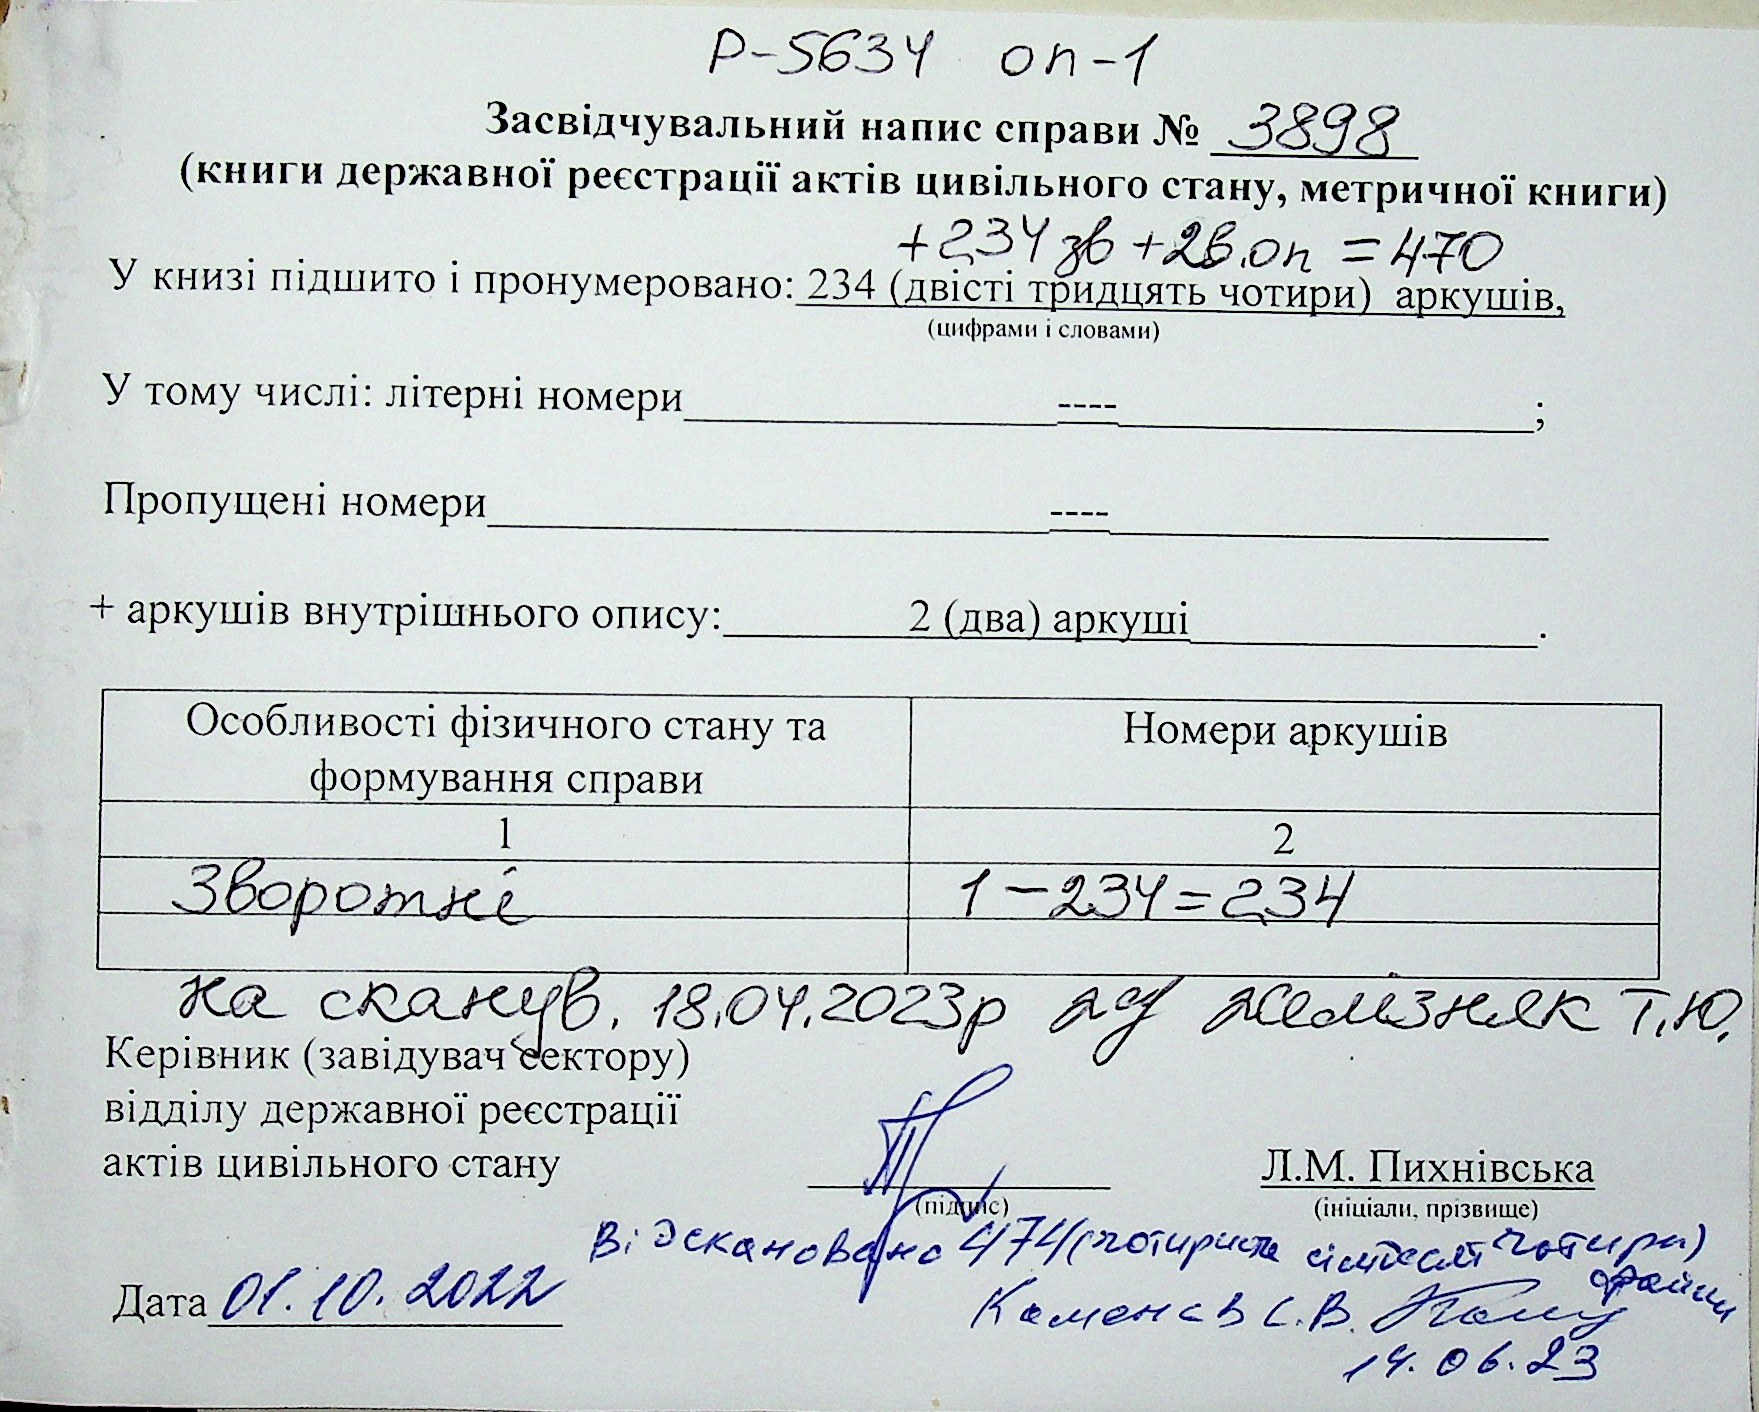 Р-5634 оп-1
Засвідчувальний напис справи № 3898
(книги державної реєстрації актів цивільного стану, метричної книги)
+234 зв +2в.оп = 470
У книзі підшито і пронумеровано: 234 (двісті тридцять чотири) аркушів,
(цифрами і словами)
У тому числі: літерні номери ---- ;
Пропущені номери ----
+ аркушів внутрішнього опису: 2 (два) аркуші .
Особливості фізичного стану та формування справи
Номери аркушів
1 2
Зворотні 1 – 234 = 234
на сканув. 18.04.2023р Желізняк Т.Ю.
Керівник (завідувач сектору)
відділу державної реєстрації
актів цивільного стану
Л.М. Пихнівська
(підпис) (ініціали, прізвище)
Відскановано 474 (чотириста сімдесят чотири)
файли
Дата 01.10.2022
Каменєв С.В.
14.06.23